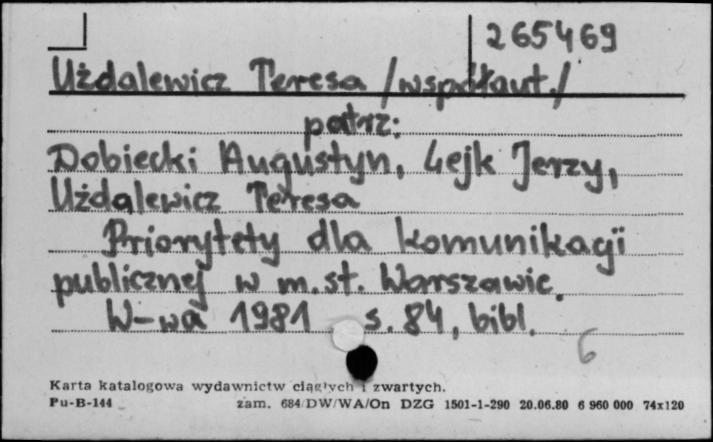 265469
Użdalewicz Teresa /współaut./
patrz:
Dobiecki Augustyn, Lejk Jerzy,
Użdalewicz Teresa
Priorytety dla komunikacji
publicznej w m.st. Warszawie.
W-wa 1981 s. 84, bibl.
6
Karta katalogowa wydawnictw ciągłych i zwartych.
Pu-B-144 zam. 684/DW/WA/On DZG 1501-1-290 20.06.80 6 960 000 74x120